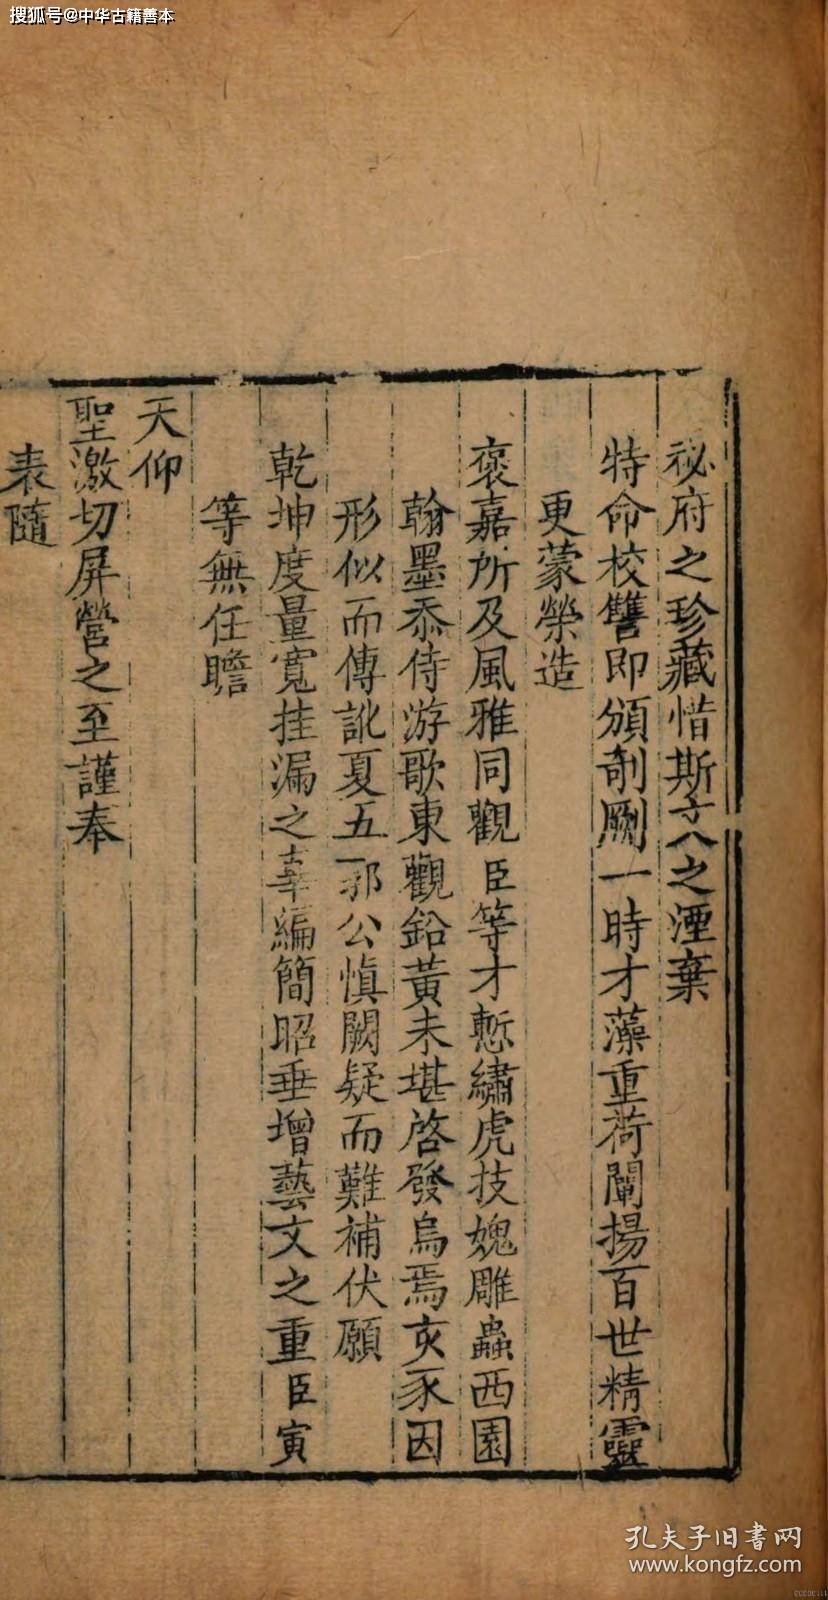 搜狐号@中华古籍善本
祕府之珍藏惜斯文之湮棄
特命校讐即頒剞劂一時才藻重荷闡揚百世精靈
更蒙榮造
褒嘉所及風雅同觀臣等才慙繡虎技媿雕蟲西園
翰墨忝侍游歌東觀鉛黃未堪啓發烏焉亥豕因
形似而傳訛夏五郭公愼闕疑而難補伏願
乾坤度量寬挂漏之辜編簡昭垂增藝文之重臣寅
等無任瞻
天仰
聖激切屏營之至謹奉
表隨
孔夫子旧书网
www.kongfz.com